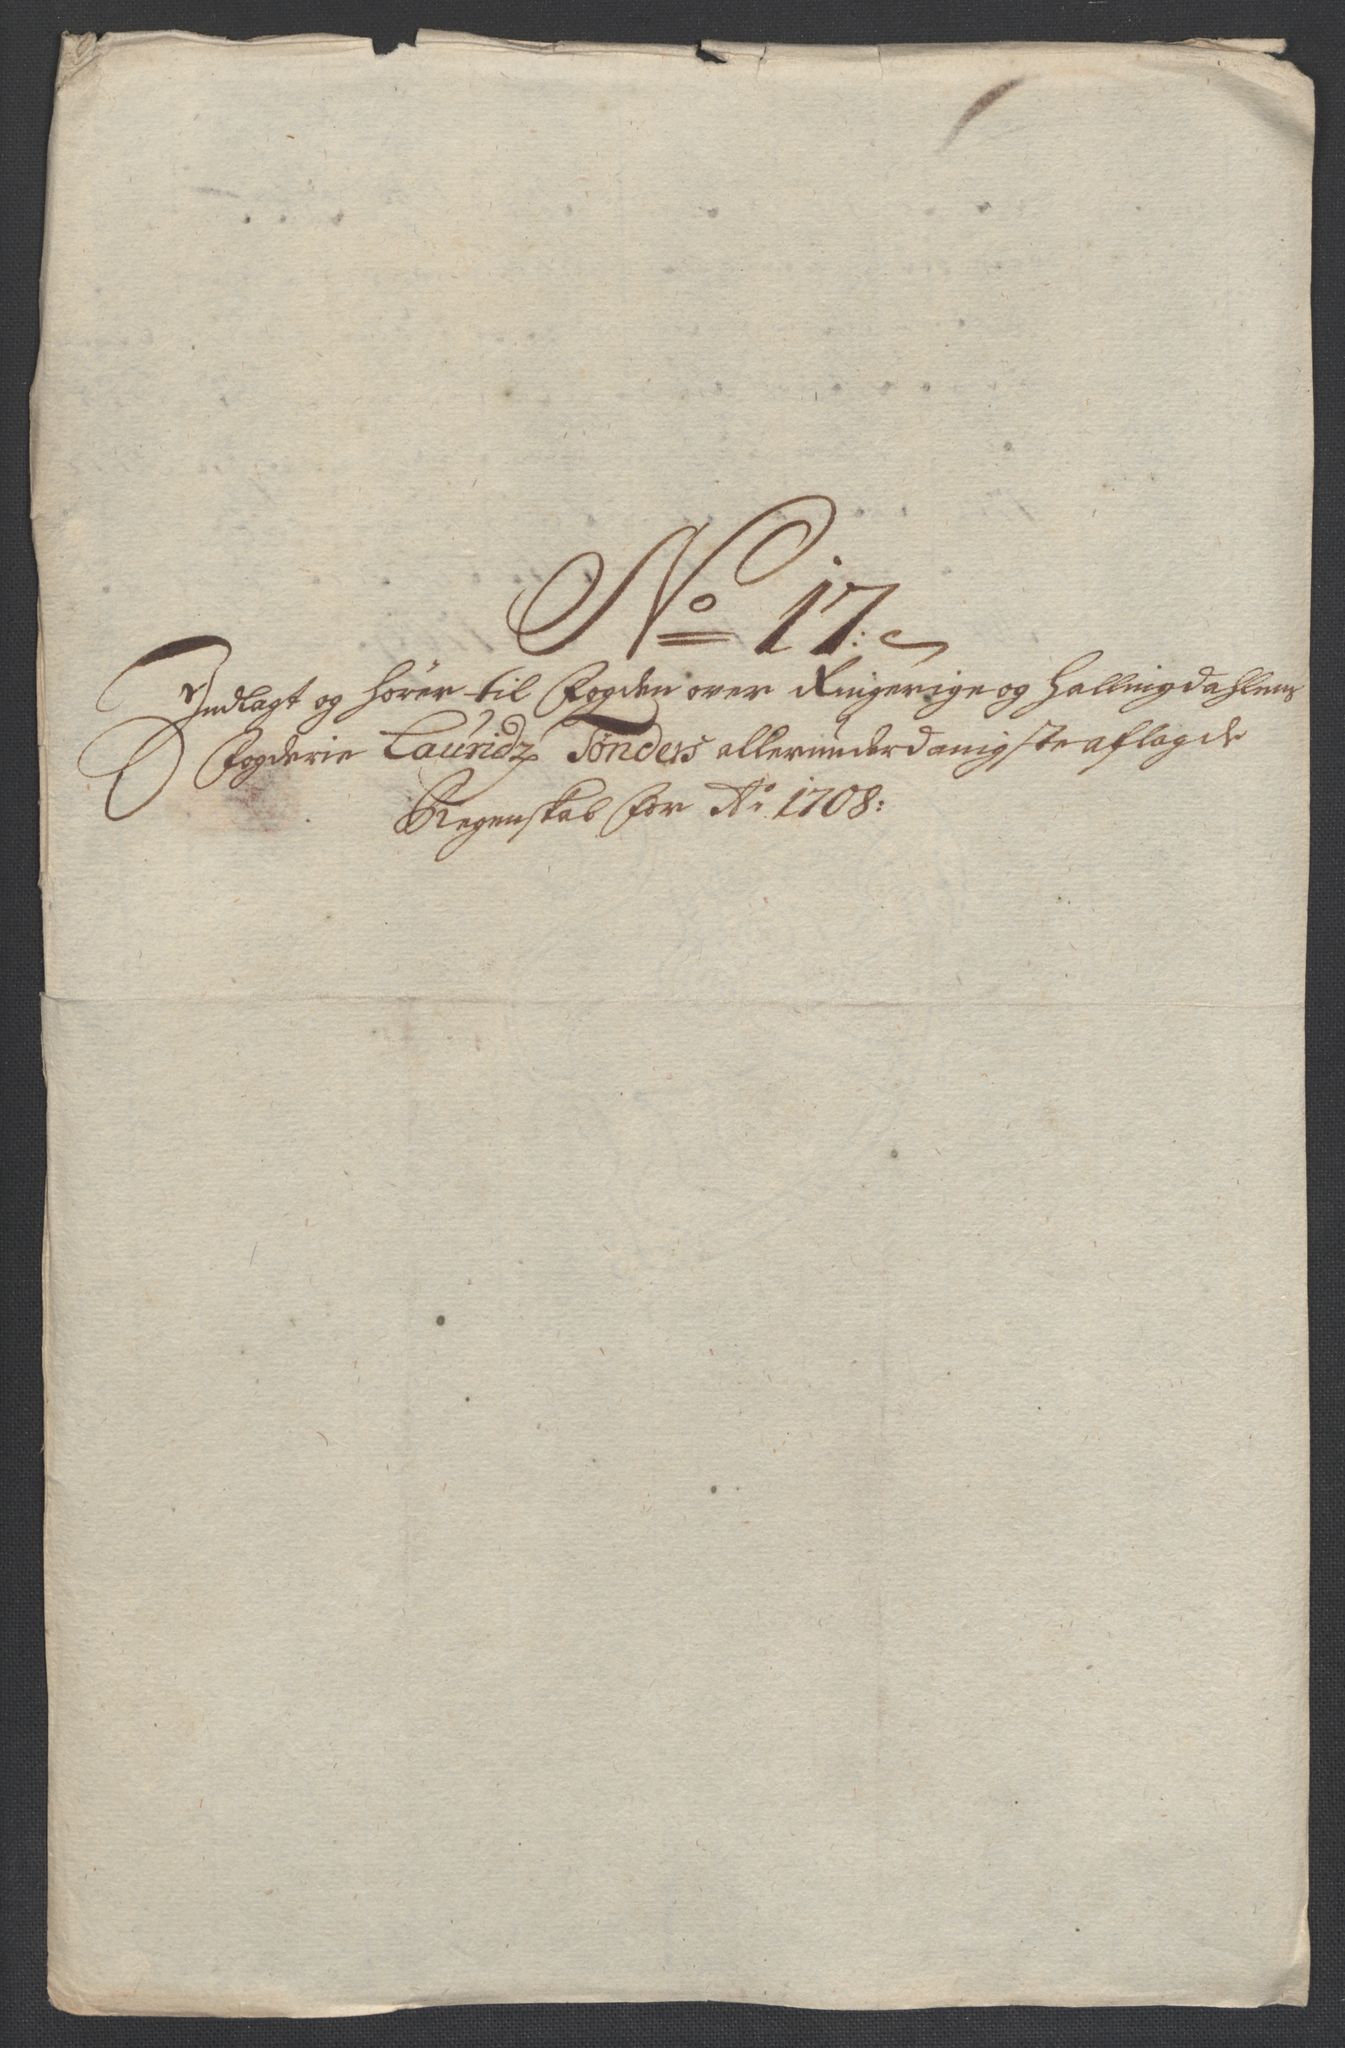 No 17:
Indlagt og hører til Fogden over Ringerige og Hallingdahlens
Fogderie Lauridz Tønders allerunderdanigste aflagde
Regenskab for Ao 1708: